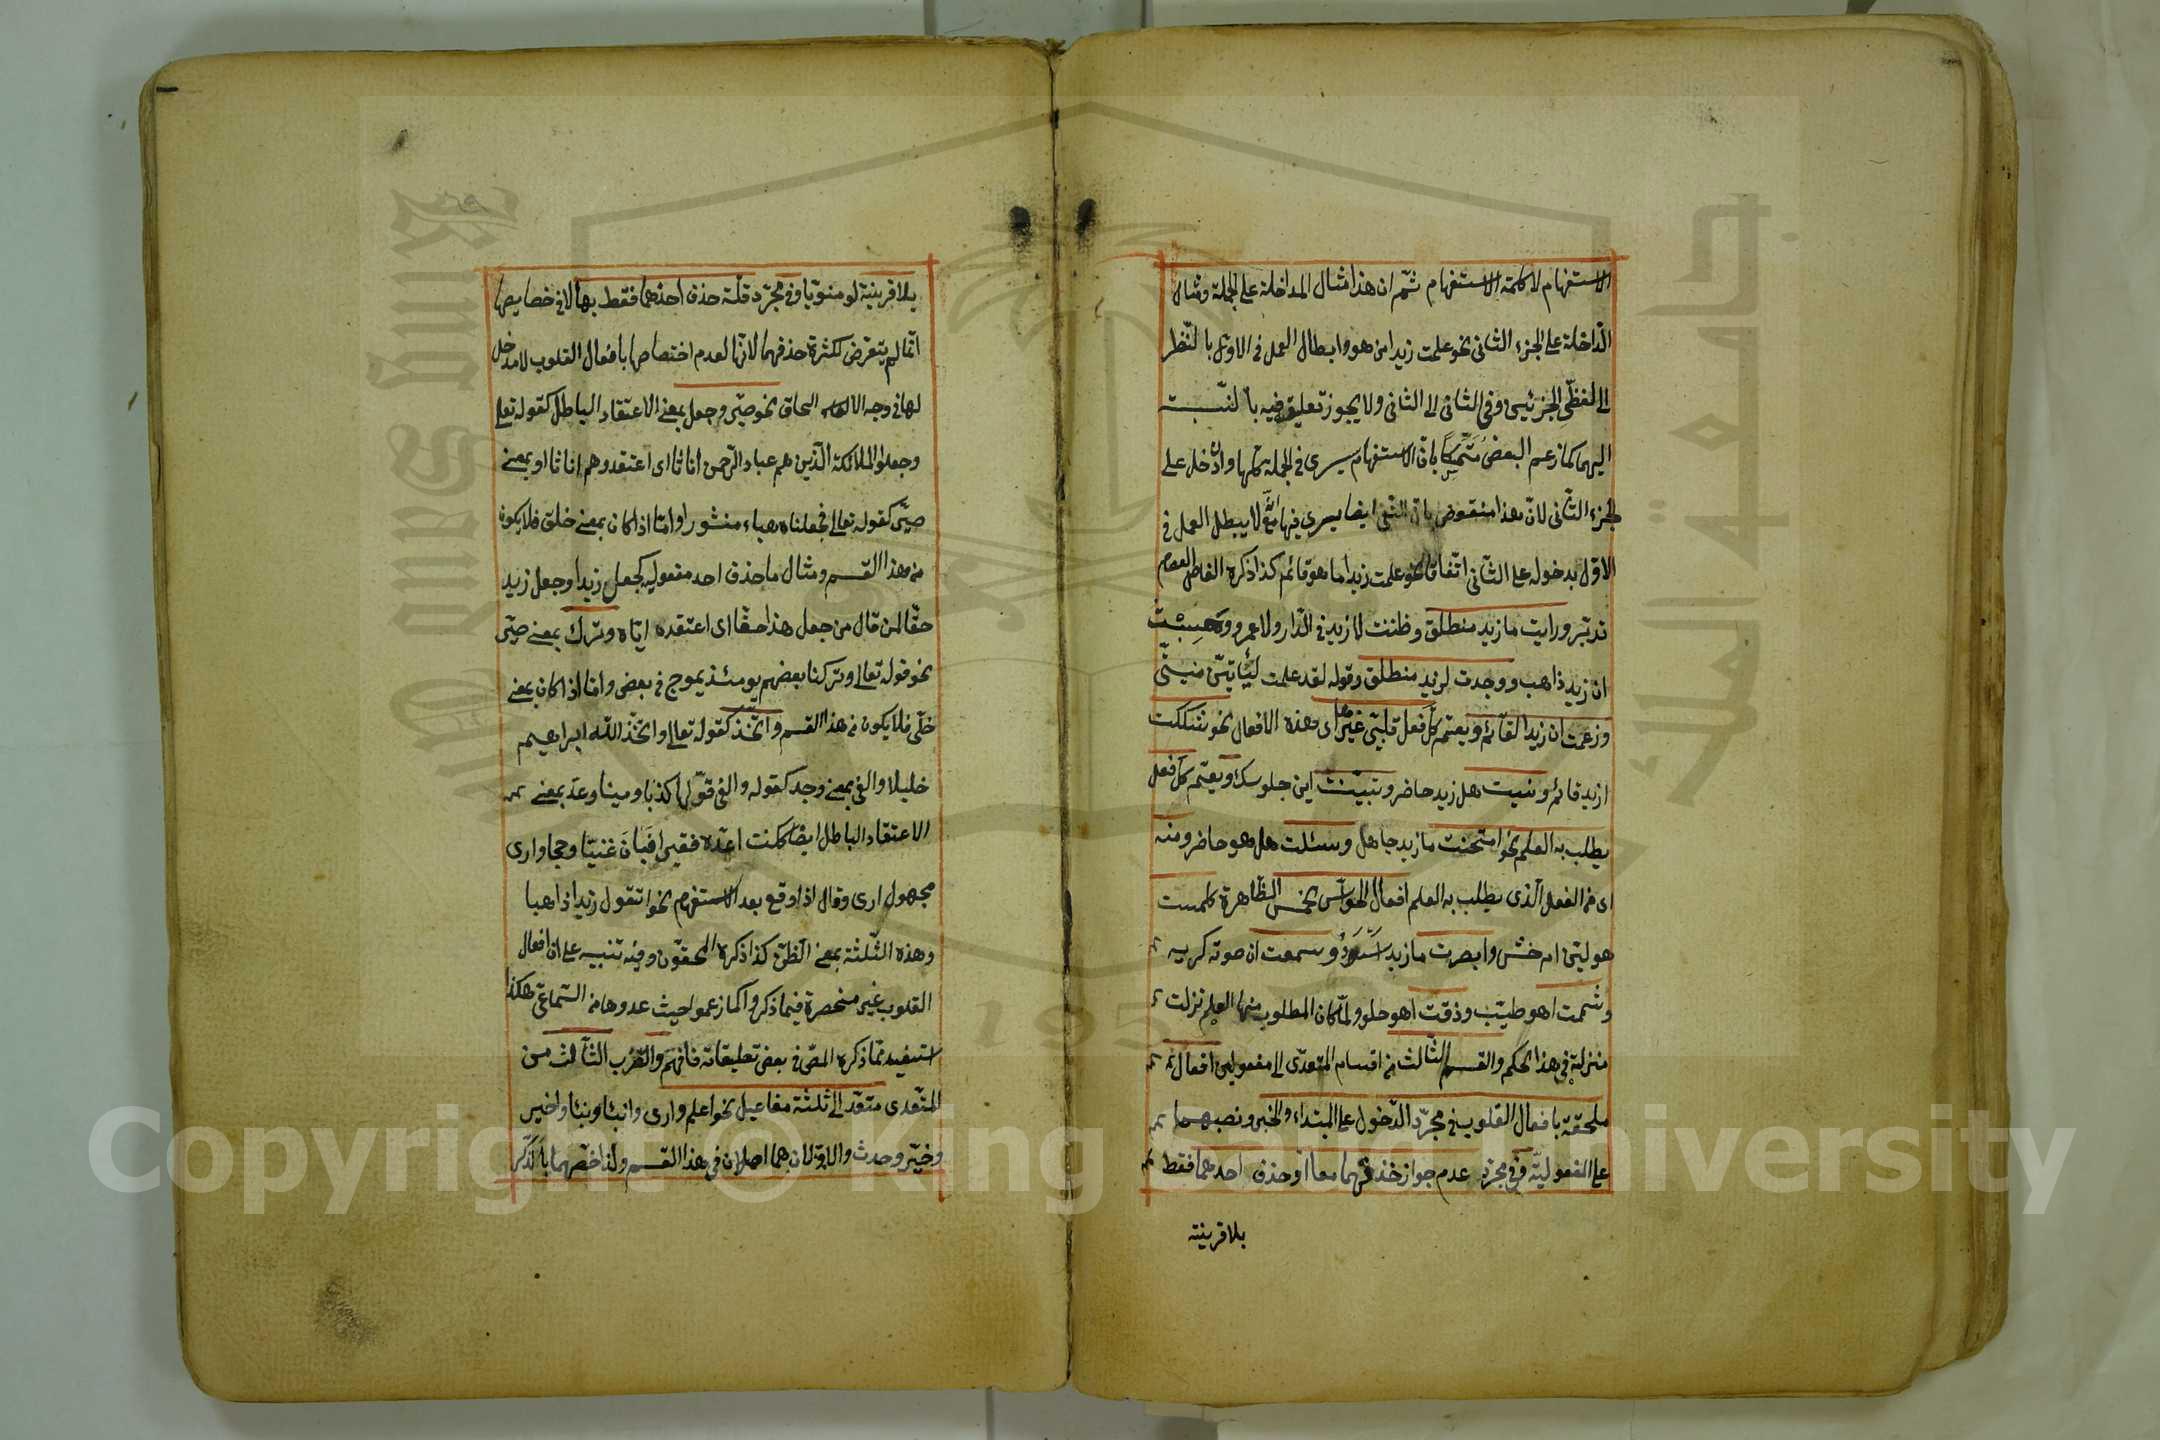 الاستفهام لا كلمة الاستفهام ثم ان هذا مثال الداخلة على الجملة ومثال
الداخلة على الجزء الثانى نحو علمت زيدا من هو وابطال العمل فى الاول بالنظر
الى لفظى الجزئين وفى الثانى الى الثانى ولا يجوز تعليق فيه بالنسبة
اليهما كما زعم البعض متمسكا بان الاستفهام يسرى فى الجملة كلها وان دخل على
الجزء الثانى لان هذا منقوض بان النفى ايضا يسرى فيها مع لا يبطل العمل فى
الاول بدخوله على الثانى اتفاقا نحو علمت زيدا ما هو قائم كذا ذكره الفاضل العصام
تدبر ورايت ما زيد منطلق وظننت لا زيد فى الدار ولا عمرو وحسبت
ان زيد ذاهب ووجدت لزيد منطلق وقوله لقد علمت لتأتين منيتى
وزعمت ان زيدا لقائم ويعتم كل فعل قلبى غيرها اى هذه الافعال نحو شككت
ازيد قائم ونسيت هل زيد حاضر وتبينت اين جلوسك ويعتم كل فعل
يطلب به العلم نحو امتحنت ما زيد جاهل وسئلت هل هو حاضر ومنه
اى من الفعل الذى يطلب به العلم افعال الحواس الخمس الظاهرة كلمست
هو لين ام خشن وابصرت ما زيد اسود وسمعت ان صوته كريه
وشممت اهو طيب وذقت اهو حلو ولما كان المطلوب منها العلم نزلت
منزلته فى هذا الحكم والقسم الثالث من اقسام المتعدى الى مفعولين افعال
ملحقة بافعال القلوب فى مجرد الدخول على المبتداء والخبر ونصبهما
على المفعولية وفى مجرد عدم جواز حذفهما معا او حذف احدهما فقط
بلا قرينة
بلا قرينة لو منويا وفى مجرد قلة حذف احدهما فقط بها لا فى خصايصها
انما لم يتعرض لكثرة حذفهما لانها لعدم اختصاصها بافعال القلوب لا مدخل
لها فى وجه الالحاق نحو صير وجعل بمعنى الاعتقاد الباطل كقوله تعالى
وجعلوا الملائكة الذين هم عباد الرحمن اناثا اى اعتقدوهم اناثا او بمعنى
صير كقوله تعالى فجعلناه هباء منثورا واما اذا كان بمعنى خلق فلا يكون
من هذا القسم ومثال ما حذف احد مفعوليه كجعل زيدا وجعل زيد
حقا لمن قال من جعل هذا حقا اى اعتقده اياه وترك بمعنى صير
نحو قوله تعالى وتركنا بعضهم يومئذ يموج فى بعض واما اذا كان بمعنى
خلى فلا يكون من هذا القسم واتخذ كقوله تعالى واتخذ الله ابراهيم
خليلا والفى بمعنى وجد كقوله والفى قولها كذبا ومينا وعد بمعنى
الاعتقاد الباطل ايضا كنت اعده فقيرا فبان غنيا وحجا وارى
مجهول ارى وقال اذا وقع بعد الاستفهام نحو اتقول زيدا ذاهبا
وهذه الثلثة بمعنى الظن كذا ذكره المحققون وفيه تنبيه على ان افعال
القلوب غير منحصرة فيما ذكروا كما زعموا حيث عدوها من السماعى هكذا
استفيد مما ذكره المص فى بعض تعليقاته فافهم والضرب الثالث من
المتعدى متعد الى ثلثة مفاعيل نحو اعلم وارى وانبأ ونبأ واخبر
وخبر وحدث والاولان هما اصلان فى هذا القسم ولذا خصهما بالذكر